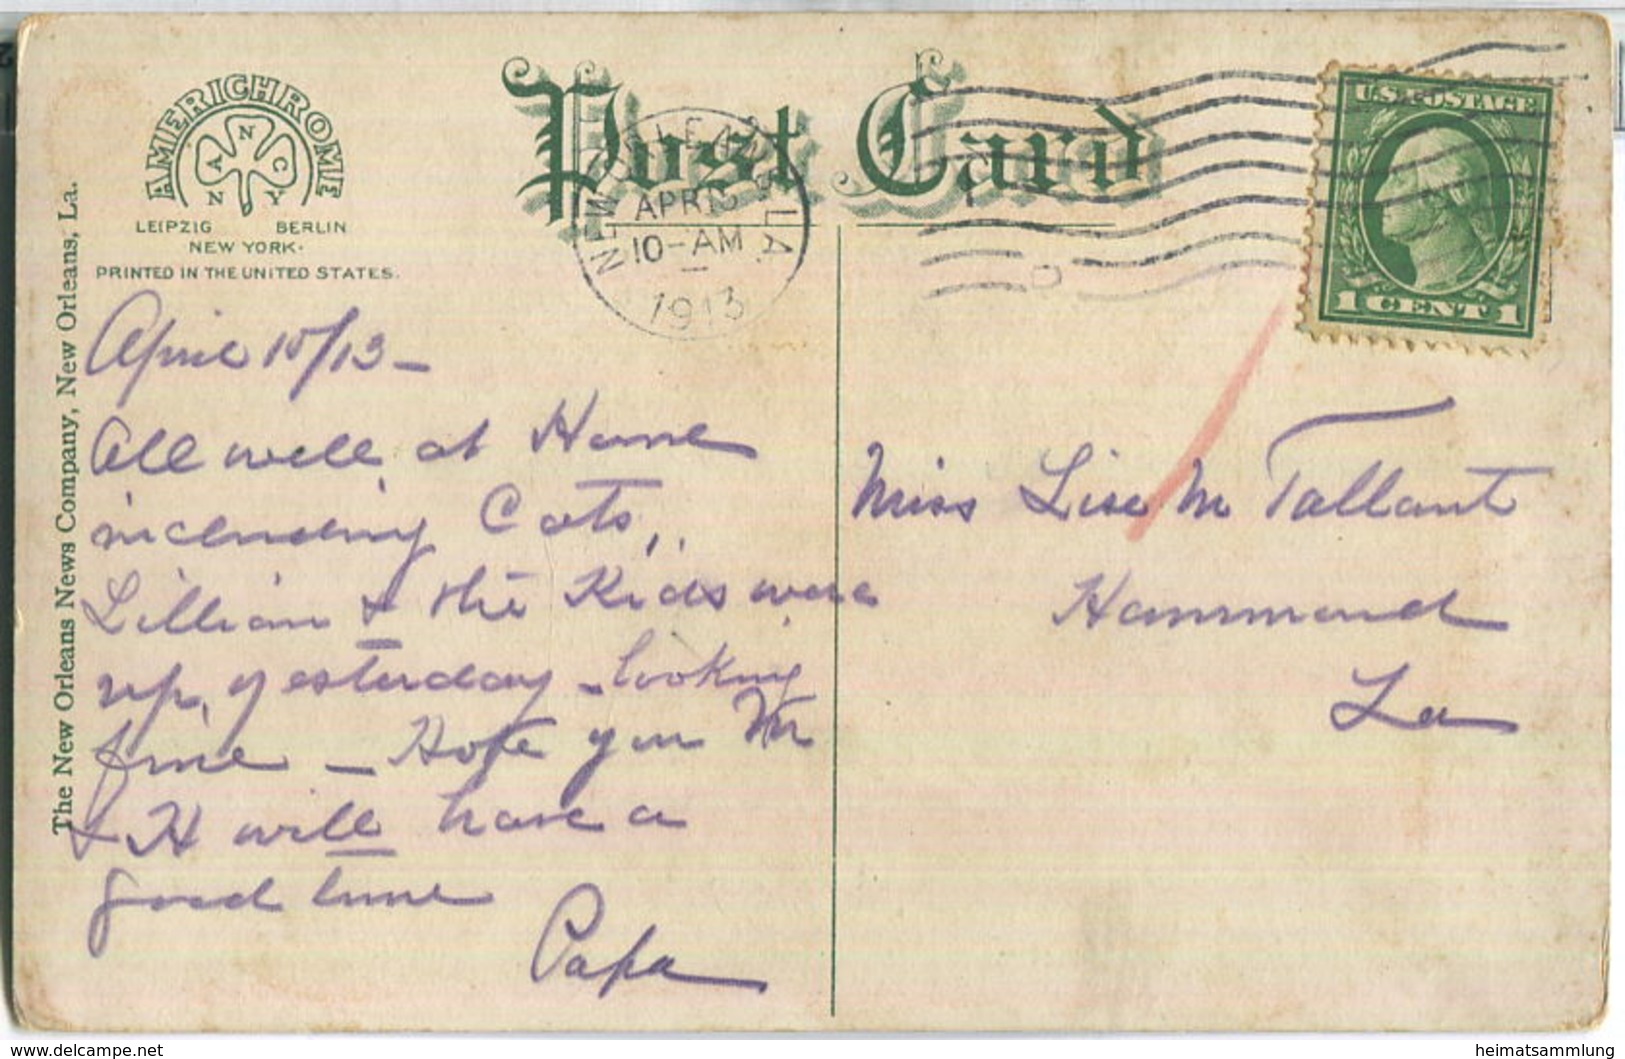 AMERICHROME
NANCY
LEIPZIG BERLIN
NEW YORK.
PRINTED IN THE UNITED STATES.
The New Orleans News Company, New Orleans, La.
Post Card
NEW ORLEANS, LA.
APR
10-AM
1913
U.S. POSTAGE
1 CENT 1
April 10/13 -
All well at Home
including Cats,
Lillian & the Kids were
up, yesterday - looking
fine - Hope you
& H will have a
good time
Papa
Miss Lise M Tallant
Hammond
La
delcampe.net
heimatsammlung